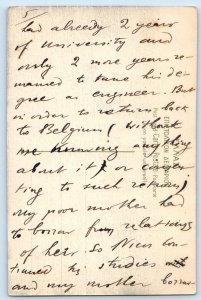 5
had already 2 years
of University and
only 2 more years re-
mained to take his de-
gree as engineer. But
in order to return back
to Belgium (without
me knowing anything
about it, or consen-
ting to such return)
my poor mother had
to borrow from relations
of hers. So Nico con-
tinued his studies
and my mother borrow